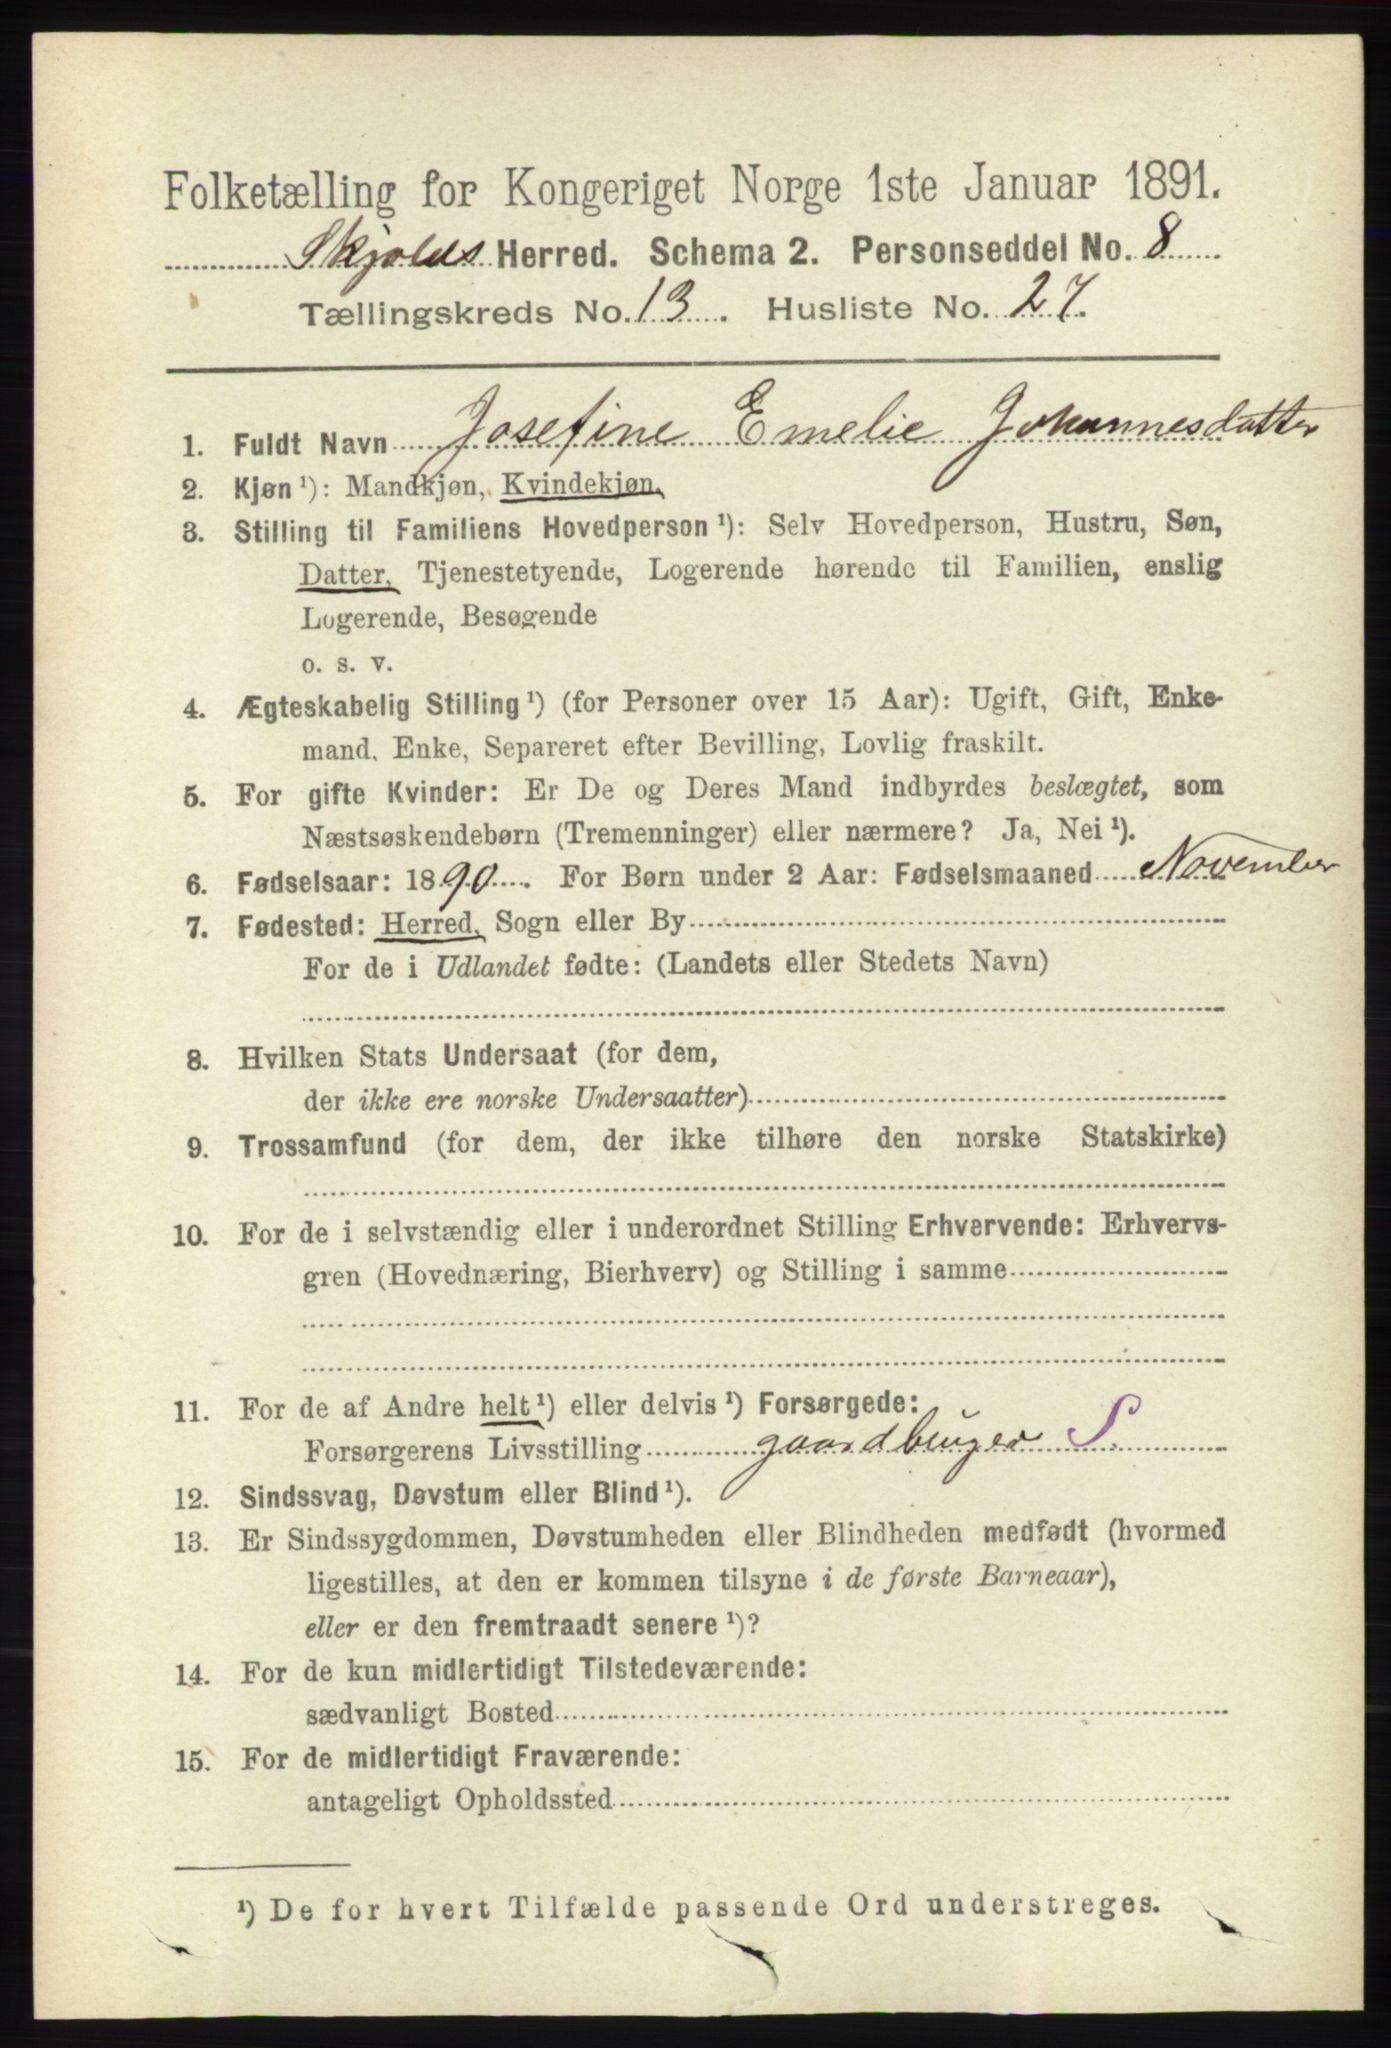 Folketælling for Kongeriget Norge 1ste Januar 1891.
Skjolds Herred. Schema 2. Personseddel No. 8
Tællingskreds No. 13. Husliste No. 27.
1. Fuldt Navn Josefine Emelie Johannesdatter
2. Kjøn ¹): Mandkjøn, Kvindekjøn.
3. Stilling til Familiens Hovedperson ¹): Selv Hovedperson, Hustru, Søn,
Datter, Tjenestetyende, Logerende hørende til Familien, enslig
Logerende, Besøgende
o. s. v.
4. Ægteskabelig Stilling ¹) (for Personer over 15 Aar): Ugift, Gift, Enke-
mand, Enke, Separeret efter Bevilling, Lovlig fraskilt.
5. For gifte Kvinder: Er De og Deres Mand indbyrdes beslægtet, som
Næstsøskendebørn (Tremenninger) eller nærmere? Ja, Nei ¹).
6. Fødselsaar: 1890. For Børn under 2 Aar: Fødselsmaaned November
7. Fødested: Herred, Sogn eller By
For de i Udlandet fødte: (Landets eller Stedets Navn)
8. Hvilken Stats Undersaat (for dem,
der ikke ere norske Undersaatter)
9. Trossamfund (for dem, der ikke tilhøre den norske Statskirke)
10. For de i selvstændig eller i underordnet Stilling Erhvervende: Erhvervs-
gren (Hovednæring, Bierhverv) og Stilling i samme
11. For de af Andre helt ¹) eller delvis ¹) Forsørgede:
Forsørgerens Livsstilling gaardbruger S.
12. Sindssvag, Døvstum eller Blind ¹).
13. Er Sindssygdommen, Døvstumheden eller Blindheden medfødt (hvormed
ligestilles, at den er kommen tilsyne i de første Barneaar),
eller er den fremtraadt senere ¹)?
14. For de kun midlertidigt Tilstedeværende:
sædvanligt Bosted
15. For de midlertidigt Fraværende:
antageligt Opholdssted
¹) De for hvert Tilfælde passende Ord understreges.